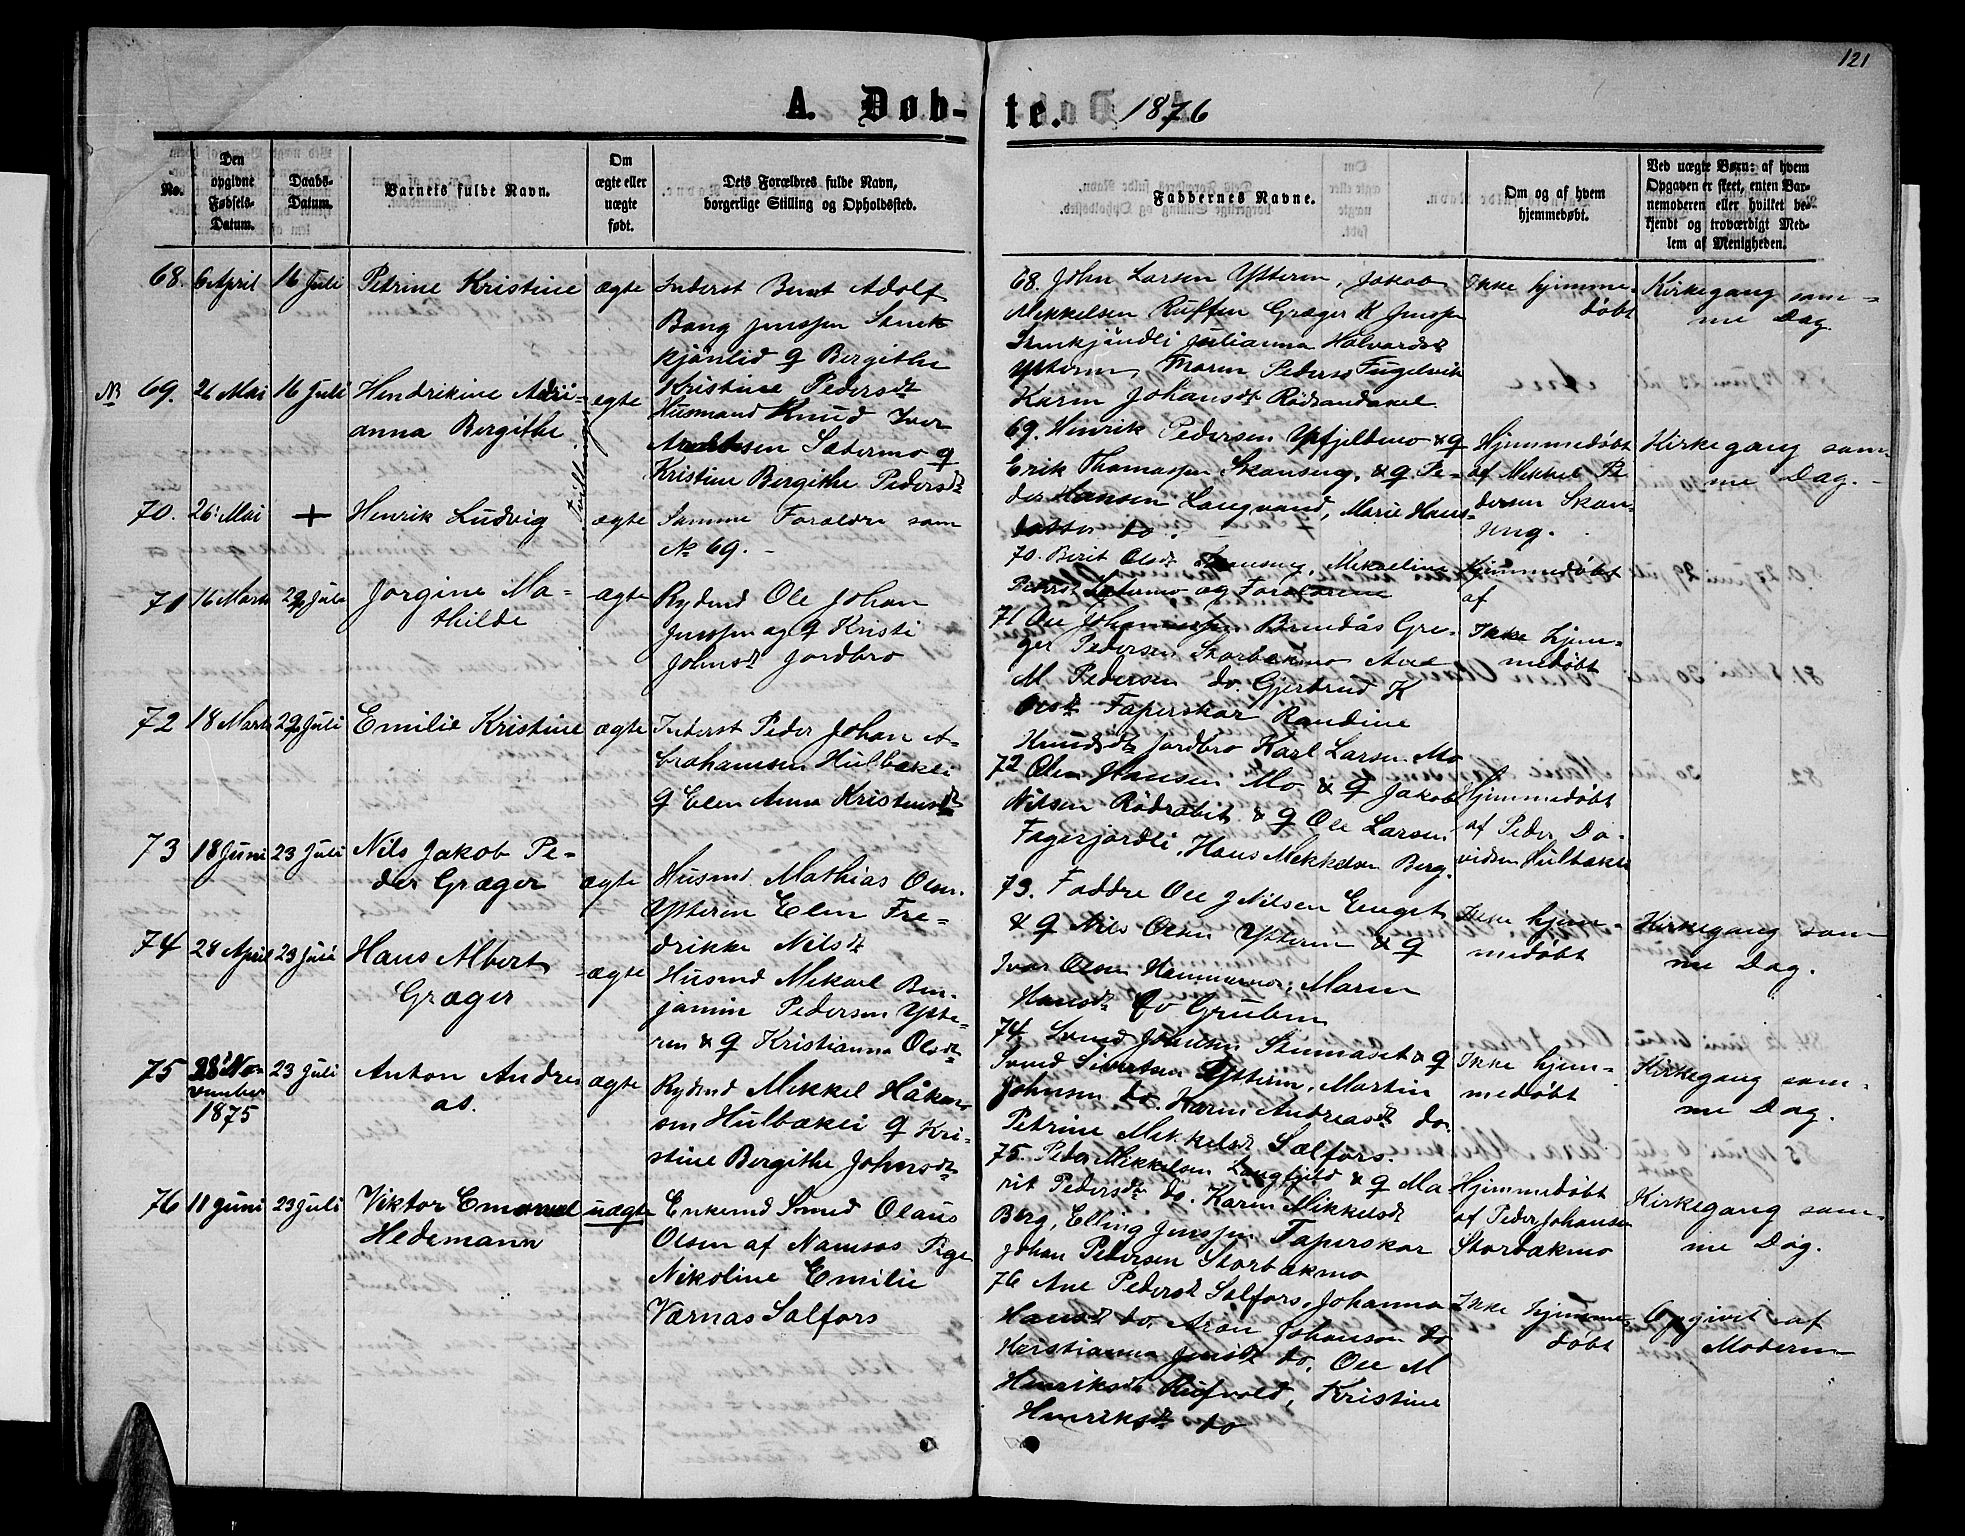 121
A. Døb-te. 1876
No.
Den opgivne Fødsels-Datum.
Daabs-Datum.
Barnets fulde Navn.
Om ægte eller uægte født.
Dets Forældres fulde Navn, borgerlige Stilling og Opholdssted.
Faddernes Navne.
Om og af hvem hjemmedøbt.
Ved uægte Børn: af hvem Opgaven er skeet, enten Barnemoderen eller hvilket bekjendt og troværdigt Medlem af Menigheden.
68. 6 April 16 Juli Petrine Kristine ægte Inderst Bernt Adolf
Bang Jenssen
& Bergithe
Kristine Pedersdt
68. John Larsen Ytteren, Jakob
Mikkelsen Ruffen Græger K Jenssen
Julianna Halvardsdt
Ytteren, Maren Peders Fugelvik
Karen Johansdt
Ikke hjemme-
døbt
Kirkegang sam-
me Dag.
NB 69. 26 Mai 16 Juli Hendrikine Adri-
anna Bergithe
ægte
Husmand Knud Iver
Sætermo &
Kristine Bergithe Pedersdt
69. Henrik Pedersen Ypfjeldmo & Q
Erik Thomassen Skanseng, & Q Pe-
der Hansen Langvand, Marie Hans-
datter do.
Hjemmedøbt
af Mikkel Pe
dersen Skan-
seng.
Kirkegang sam-
me Dag.
70. 26 Mai + Henrik Ludvig ægte Samme Forældre som
No 69. -
70. Berit Olsdt Skanseng, Mikaeline
Pedersdt Sætermo og Forældrene
Hjemmedøbt
af
71 16 Marts 29 Juli Jørgine Ma-
thilde
ægte Rydnd Ole Johan
Jenssen og Q Kristi
Johnsdt Jordbro
71 Ole Johannessen Brendås Gre-
ger Pedersen Storbækmo Ane
M Pedersen do. Gjertrud K
Olsdt Faperskar Randine
Knudsdt Jordbro Karl Larsen Mo
Ikke hjem-
medøbt
72 18 Marts 29 Juli Emilie Kristine ægte Inderst Peder Johan A-
brahamsen Hulbækli
Q Elen Anna Kristensdt
72 Hansen Mo & Q Jakob
Nilsen & Q Ole Larsen
Fagerjordli, Hans Mikkelsen Berg.
Hjemmedøbt
af Peder Da-
vidsen Hulbækli
73 18 Juni 23 Juli Nils Jakob Pe-
der Græger
ægte Husmd. Mathias Olsen
Ytteren Elen Fre-
drikke Nilsdt
73. Faddre Ole J Nilsen Enget
& Q Nils Olsen Ytteren & Q
Ivar Olsen Hammernes, Maren
Hansdt Gruben
Ikke hjem-
medøbt
Kirkegang sam
me Dag.
74 28 April 23 Juli Hans Albert
Græger
ægte
Husmd Mikael Ben-
jamin Pedersen Ytte-
ren & Q Kristianna Olsdt
74. Svend Johnsen & Q
Svend Sivertsen Ytteren, Martin
Johnsen do. Karen Andreasdt do.
Petrine Mikkelsdt Selfors.
Ikke hjem-
medøbt
Kirkegang sam-
me Dag.
75 28 No-
vember
1875
23 Juli Anton Andre
as.
ægte Rydnd Mikkel Håken-
sen Hulbækli Q Kri-
stine Bergithe Johnsdt
75. Peder Mikkelsen Langfjeld & Q Ma
rit Pedersdt do. Karen Mikkelsdt
Berg, Elling Jenssen Faperskar
Johan Pedersen Storbækmo
Hjemmedøbt
af Peder Johansen
Storbækmo
Kirkegang sam-
me Dag.
76 11 Juni 23 Juli Viktor Emanuel
Hedemann
uægte Enkemd Smed Olaus
Olsen af Namsos Pige
Nikoline Emilie
Værnas Salfors
76 Ane Pedersdt Salfors, Johanna
Hansdt do, Aron Johansen do
Jensdt do. Ole M
Kristine
Henriksdt do
Ikke hjemme-
døbt
Opgivet af
Moderen